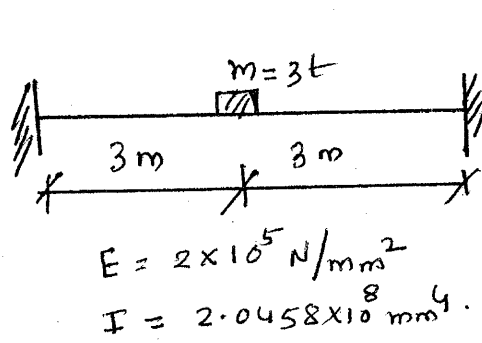 m=3t
3m 3m
E = 2×10⁵ N/mm²
I = 2.0458×10⁸ mm⁴.